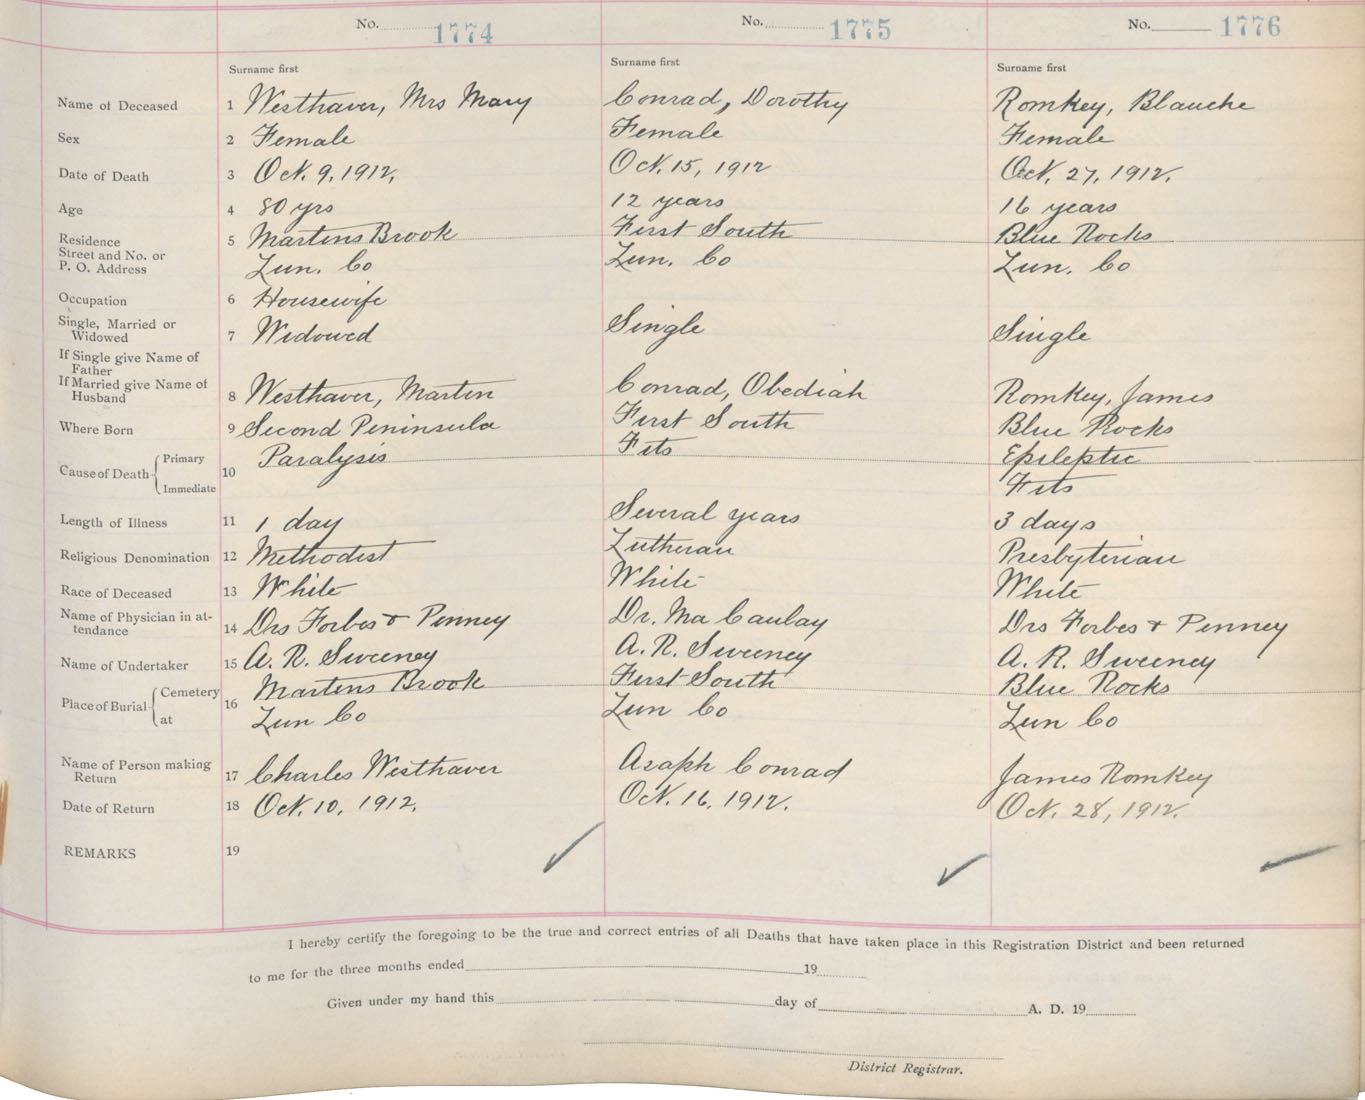 No. 1774 No. 1775 No. 1776
Surname first Surname first Surname first
Name of Deceased 1 Westhaver, Mrs Mary Conrad, Dorothy Romkey, Blanche
Sex 2 Female Female Female
Date of Death 3 Oct. 9, 1912, Oct. 15, 1912 Oct. 27, 1912.
Age 4 80 yrs 12 years 16 years
Residence 5 Martins Brook First South Blue Rocks
Street and No. or
P. O. Address Lun. Co Lun. Co Lun. Co
Occupation 6 Housewife
Single, Married or
Widowed 7 Widowed Single Single
If Single give Name of
Father
If Married give Name of
Husband 8 Westhaver, Martin Conrad, Obediah Romkey, James
Where Born 9 Second Peninsula First South Blue Rocks
Cause of Death Primary 10 Paralysis Fits Epileptic
Immediate Fits
Length of Illness 11 1 day Several years 3 days
Religious Denomination 12 Methodist Lutheran Presbyterian
Race of Deceased 13 White White White
Name of Physician in at-
tendance 14 Drs Forbes & Penney Dr. Ma Caulay Drs Forbes & Penney
Name of Undertaker 15 A. R. Sweeney A. R. Sweeney A. R. Sweeney
Place of Burial Cemetery 16 Martins Brook First South Blue Rocks
at Lun Co Lun Co Lun Co
Name of Person making
Return 17 Charles Westhaver Asaph Conrad James Romkey
Date of Return 18 Oct. 10, 1912. Oct. 16, 1912. Oct. 28, 1912.
REMARKS 19
I hereby certify the foregoing to be the true and correct entries of all Deaths that have taken place in this Registration District and been returned
to me for the three months ended 19
Given under my hand this day of A. D. 19
District Registrar.